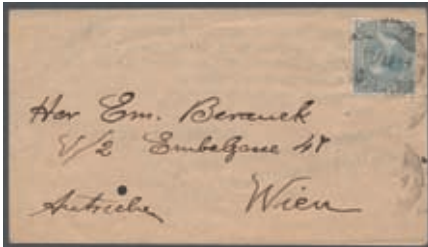 Herr Em. Beraneck
V/2 Embelgasse 47
Autriche Wien